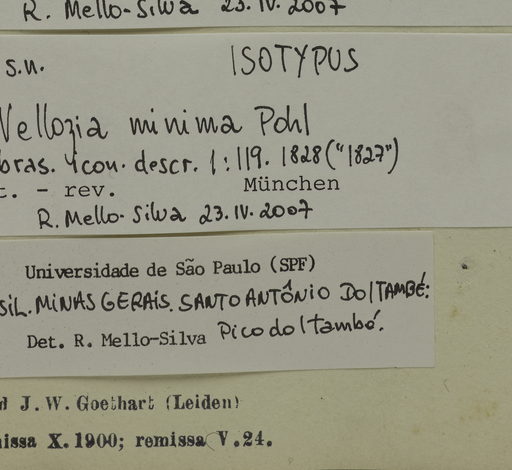 R. Mello-Silva 23.IV.2007
s.n. ISOTYPUS
Vellozia minima Pohl
bras. icon. descr. 1:119. 1828 ("1827")
t. - rev. München
R. Mello-Silva 23.IV.2007
Universidade de São Paulo (SPF)
SIL. MINAS GERAIS. SANTO ANTÔNIO DO ITAMBÉ:
Det. R. Mello-Silva Pico do Itambé.
d J. W. Goethart (Leiden)
issa X.1900; remissa V.24.